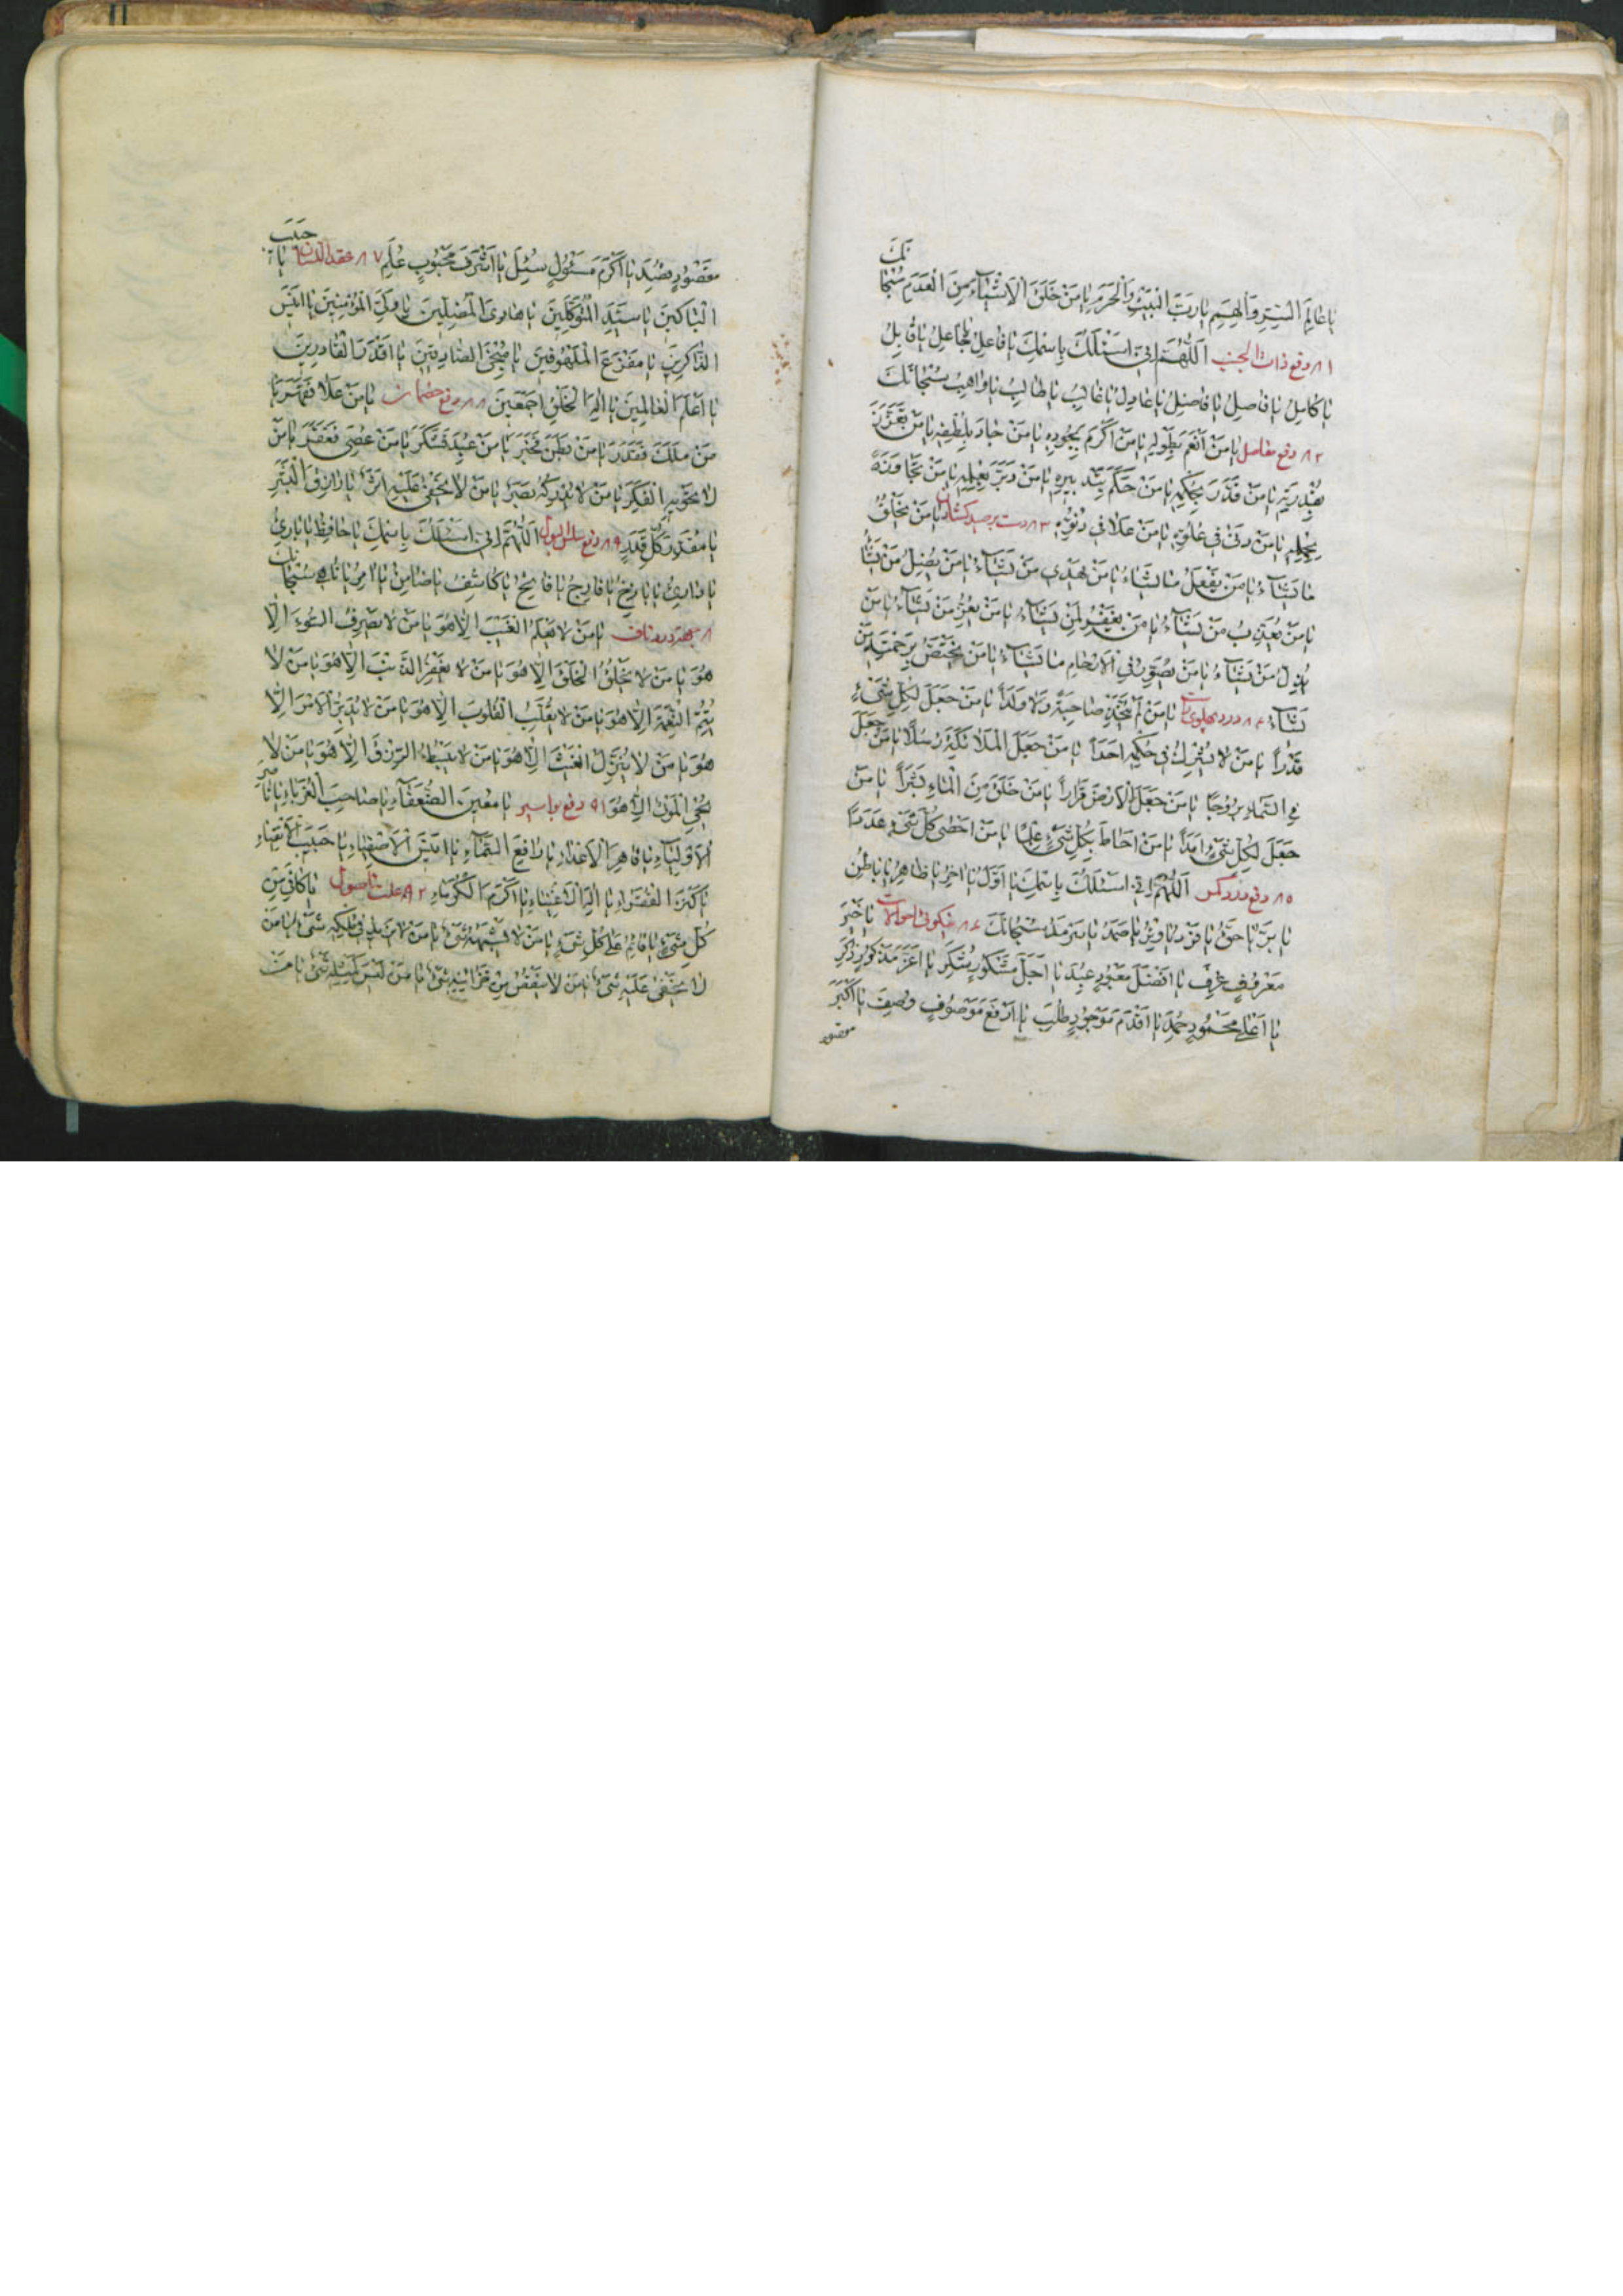 يا عالم السر والهمم يا رب البيت والحرم يا من خلق الاشياء من العدم سبحا
نك
٨١ دفع ذات الجنب اللهم اني اسئلك باسمك يا فاعل يا جاعل يا قابل
يا كامل يا فاصل يا عادل يا غالب يا طالب يا واهب سبحانك
٨٢ دفع مفاصل يا من انعم بطوله يا من اكرم بجوده يا من جاد بلطفه يا من تعزز
بقدرته يا من قدر بحكمته يا من حكم بتدبيره يا من دبر بعلمه يا من تجاوز
بحلمه يا من دنى في علوه يا من علا في دنوه ٨٣ يا من يخلق
ما يشاء يا من يفعل ما يشاء يا من يهدي من يشاء يا من يضل من يشاء
يا من يعذب من يشاء يا من يغفر لمن يشاء يا من يعز من يشاء يا من
يذل من يشاء يا من يصور في الارحام ما يشاء يا من يختص برحمته من
يشاء ٨٤ درد پهلوى يا من لم يتخذ صاحبة ولا ولدا يا من جعل لكل شيء
قدرا يا من لا يشرك في حكمه احدا يا من جعل الملائكة رسلا يا من جعل
في السماء بروجا يا من جعل الارض قرارا يا من خلق من الماء بشرا يا من
جعل لكل شيء امدا يا من احاط بكل شيء علما يا من احصى كل شيء عددا
٨٥ دفع اللهم اني اسئلك باسمك يا اول يا اخر يا ظاهر يا باطن
يا بر يا حق يا فرد يا وتر يا صمد يا سرمد سبحانك ٨٦ نيكوئى احوال يا خير
معروف عرف يا افضل معبود عبد يا اجل مشكور شكر يا اعز مذكور ذكر
يا اعلى محمود حمد يا اقدم موجود طلب يا ارفع موصوف وصف يا اكبر
مقصود
مقصود قصد يا اكرم مسئول سئل يا اشرف محبوب علم ٨٧ عقد اللسان يا
حبيب
الباكين يا سيد المتوكلين يا هادى المضلين يا ولي المؤمنين يا انيس
الذاكرين يا مفزع الملهوفين يا منجي الصادقين يا اقدر القادرين
يا اعلم العالمين يا اله الخلق اجمعين ٨٨ دفع خصمان يا من علا فقهر يا
من ملك فقدر يا من بطن فخبر يا من عبد فشكر يا من عصي فغفر يا من
لا تحويه الفكر يا من لا يدركه بصر يا من لا يخفى عليه اثر يا رازق البشر
يا مقدر كل قدر ٨٩ دفع سلس البول اللهم اني اسئلك باسمك يا حافظ يا بارئ
يا ذارئ يا باذخ يا فارج يا فاتح يا كاشف يا ضامن يا امر يا ناهي سبحا
نك
يا من لا يعلم الغيب الا هو يا من لا يصرف السوء الا
هو يا من لا يخلق الخلق الا هو يا من لا يغفر الذنب الا هو يا من لا
يتم النعمة الا هو يا من لا يقلب القلوب الا هو يا من لا يدبر الامر الا
هو يا من لا ينزل الغيث الا هو يا من لا يبسط الرزق الا هو يا من لا
يحي الموتى الا هو ٩١ دفع بواسير يا معين الضعفاء يا صاحب الغرباء يا ناصر
الاولياء يا قاهر الاعداء يا رافع السماء يا انيس الاصفياء يا حبيب الاتقياء
يا كنز الفقراء يا اله الاغنياء يا اكرم الكرماء ٩٢ يا كافي من
كل شيء يا قائم على كل شيء يا من لا يشبهه شيء يا من لا يزيد في ملكه شيء يا من
لا يخفى عليه شيء يا من لا ينقص من خزائنه شيء يا من ليس كمثله شيء يا من